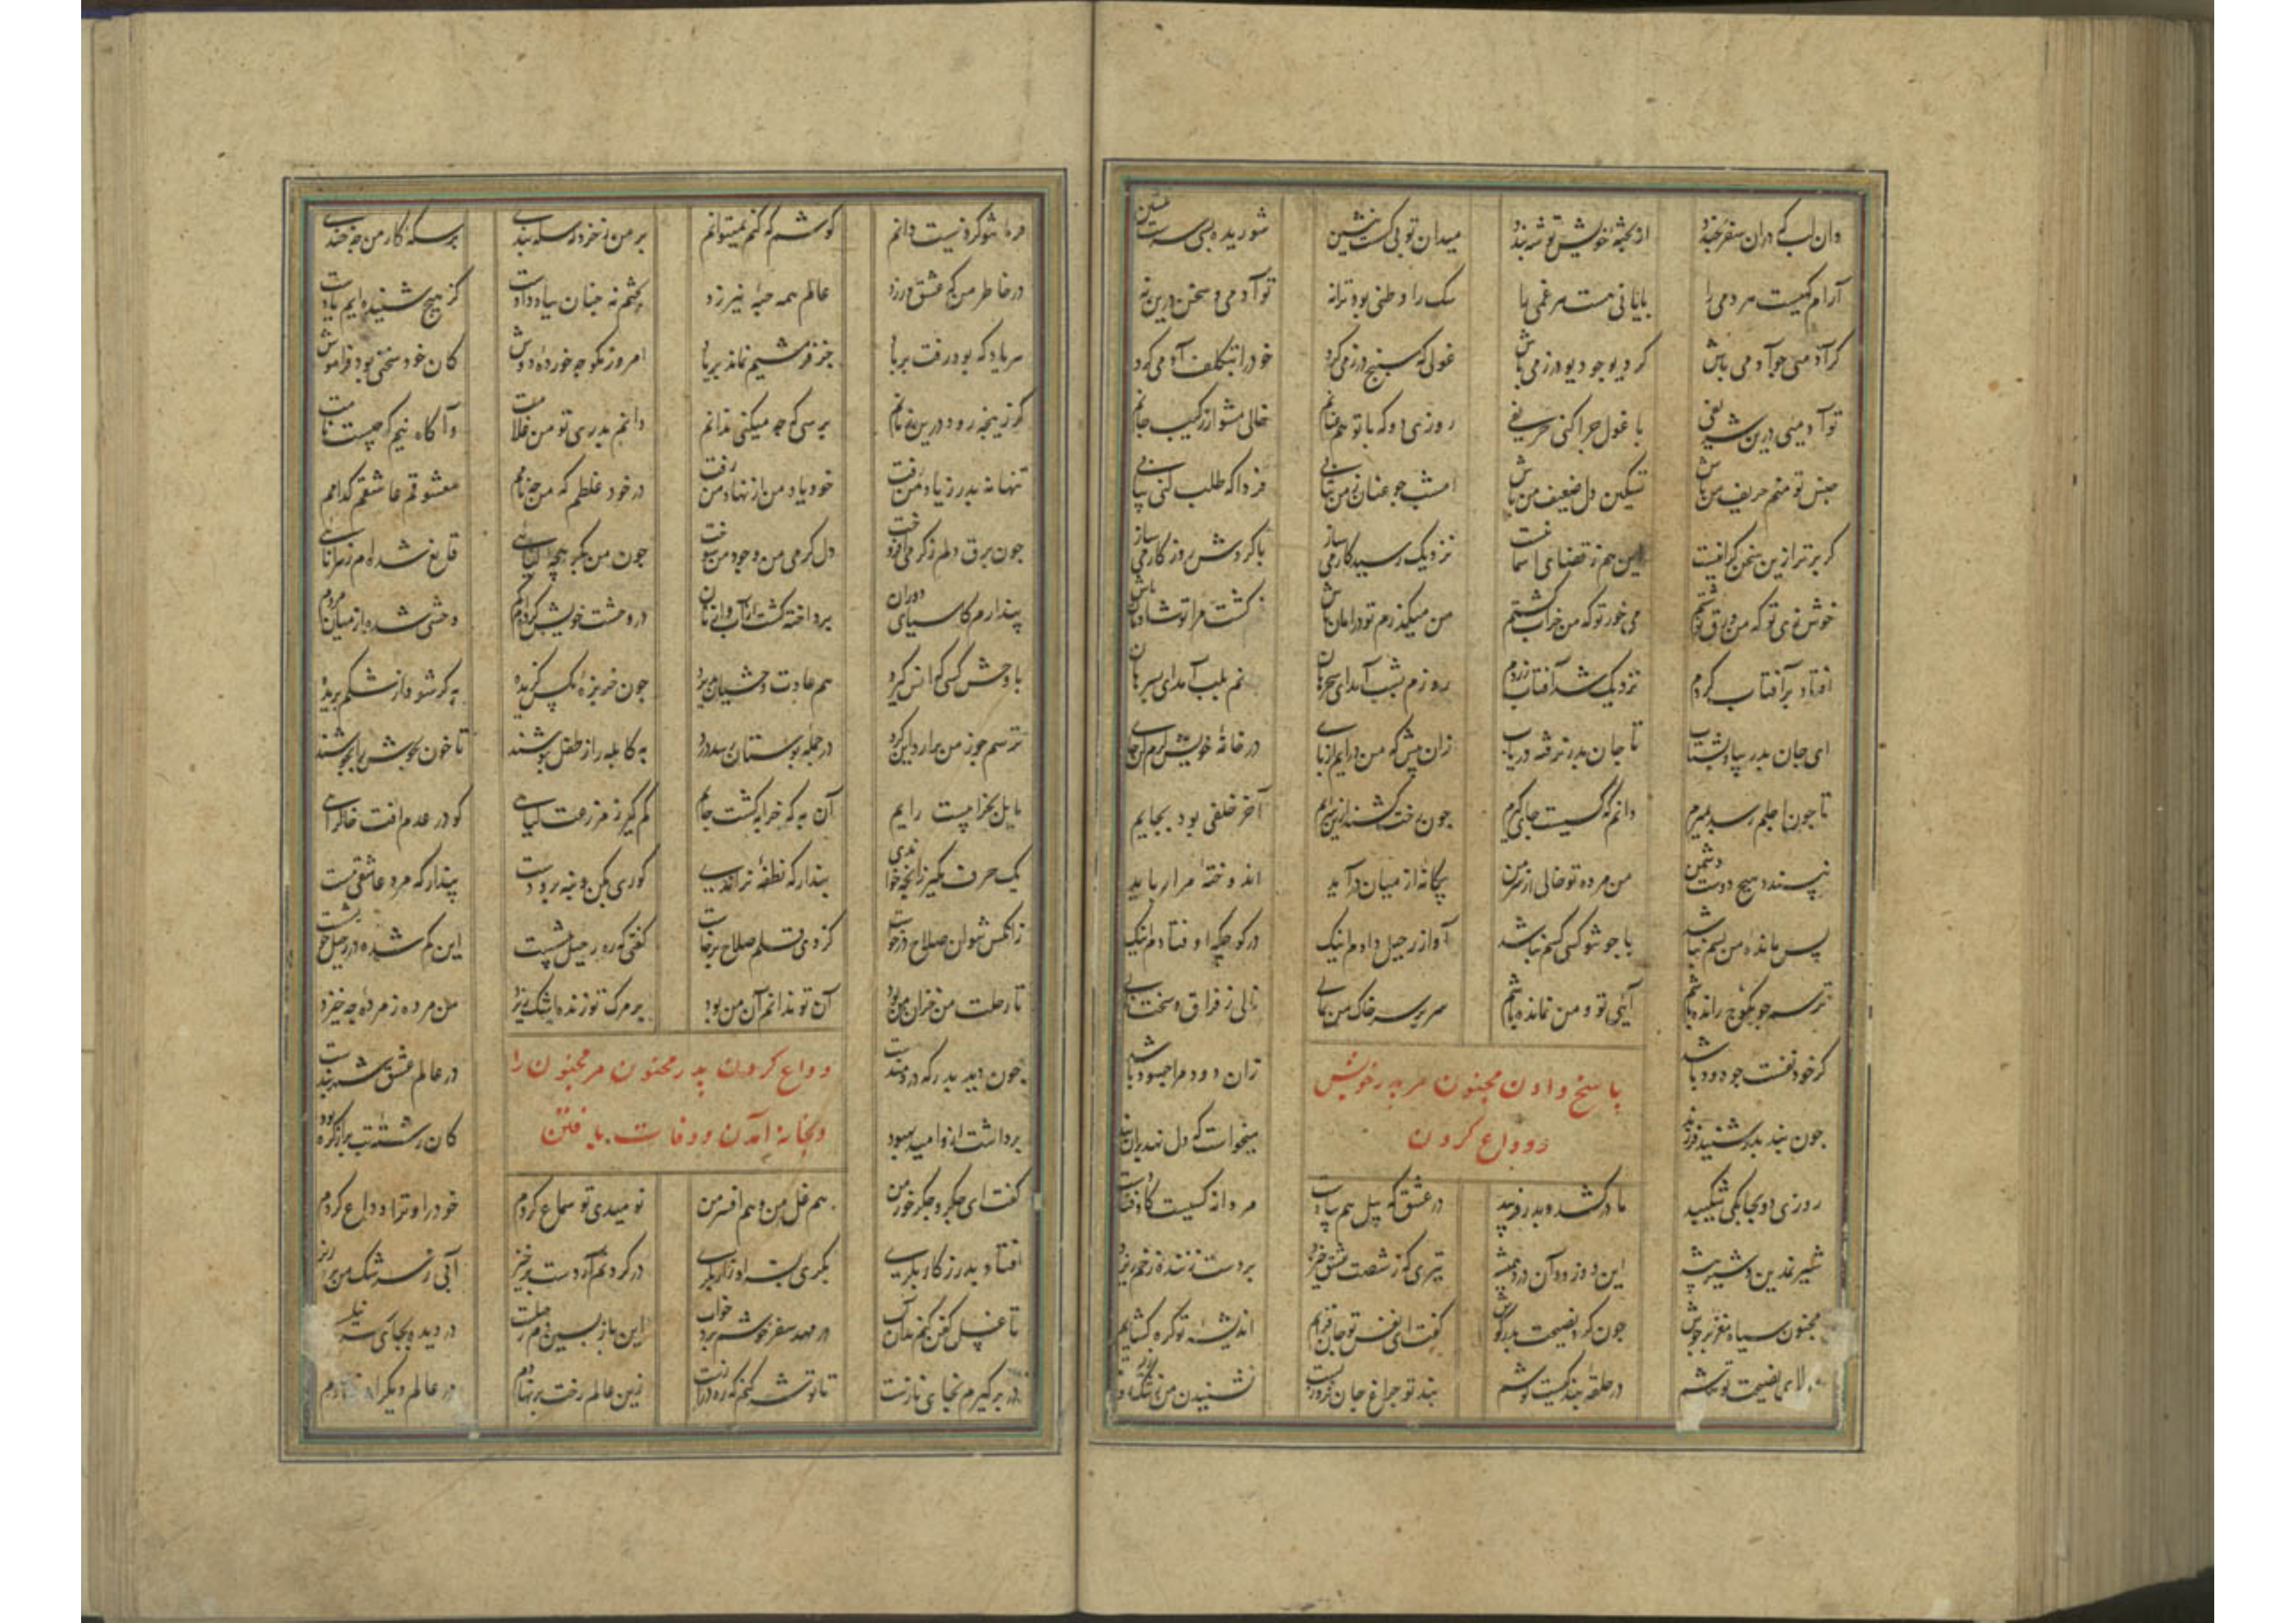 وان لب که دران سفر بخندد از پخته خویش توشه بندد میدان تو بی کست بنشین شوریده بسی
آرام گهیست هر دمی را پایانی هست هر غمی را سک را وطنی بود ترا نه تو آدمی و سخن درین نه
کر آدمیی چو آدمی باش کر دیو چو دیو در زمی باش غولی که بسیج در زمی کرد خود را بتکلف آدمی کرد
تو آدمیی درین شریفی با غول چرا کنی حریفی روزی دو که با تو هم عنانم خالی مشو از رکیب جانم
جنس تو منم حریف من باش تسکین دل ضعیف من باش امشب چو عنان ز من بتابی فردا که طلب کنی نیابی
کر بر تو ازین سخن کرانیست این هم ز قضای آسمانیست نزدیک رسید کار می ساز با کردش روزکار می ساز
خوش زی تو که من ورق نوشتم می خور تو که من خراب کشتم من میکذرم تو در امان باش کشت مرا تو شادمان باش
افتاد بر آفتاب کردم نزدیک شد آفتاب زردم روزم بشب آمد ای سحر هان جانم بلب آمد ای پسر هان
ای جان پدر بیا و بشتاب تا جان پدر نرفته دریاب زان پیش که من درایم از پای در خانه خویش کرم کن جای
تا چون اجلم رسد بمیرم دانم که کیست جای کیرم چون رخت کشند ازین سرایم آخر خلفی بود بجایم
نپسندد هیچ دوست و دشمن من مرده تو خالی از سر من بیکانه از میان درآید اندوخته مرا رباید
پس مانده من بسم نباشد کسی کسم نباشد آواز رحیل دادم اینک در کوچکه اوفتادم اینک
ترسم چو بکوچ رانده باشم آیی تو و من نمانده باشم سر بر سر خاک من بمالی نالی ز فراق و سخت نالی
کر خود نفست چو دود باشد زان دود مرا چه سود باشد
پاسخ دادن مجنون مر پدر خویش
و وداع کردن
چون پند پدر شنید فرزند میخواست که دل نهد بران پند
روزی دو بچابکی شکیبید پا درکشد و پدر فریبد در عشق که پل هم پیادست مردانه کسیست کاوفتادست
تیری که ز شصت عشق خیزد بر دست زننده زخم ریزد
مجنون سیاه مغز پرجوش چون کرد نصیحت پدر کوش کفت ای نفس تو جان فزایم اندیشه تو کره کشایم
مولای نصیحت تو هوشم در حلقه بندکیست کوشم پند تو چراغ جان فروزیست نشنیدن من ز تنک روزیست
فرمان تو کردنیست دانم کوشم که کنم نمیتوانم بر من ز خرد چه سکه بندی بر سکه کار من چه خندی
در خاطر من که عشق ورزد عالم همه حبه نیرزد بختم نه چنان بباد دادست کز هیچ شنیده ایم یادست
هر یاد که بود رفت برباد جز فرمشیم نماند بر یاد امروز مکو چه خورده دوش کان خود سخنی بود فراموش
کر زانچه رود درین زمانم پرسی که چه میکنی ندانم دانم پدری تو من غلامت وآکاه نیم که چیست نامت
تنها نه پدر ز یاد من رفت خود یاد من از نهاد من رفت در خود غلطم که من چه نامم معشوقم عاشقم کدامم
چون برق دلم ز کرمی افروخت دل کرمی من وجود من سوخت چون من بکریچه و کیایی قانع شده ام ز هر ابایی
پندارم کاسیای دوران پرداخته کشت از آب و از نان در وحشت خویش کشته ام کم وحشی شده از میان مردم
با وحش کسی که انس کیرد هم عادت وحشیان پذیرد چون خربزه مکس کزیده به کر شود از شکم بریده
ترسم چو ز من برآرد این کرد در جمله بوستان رسد درد به کابله را ز طفل پوشند تا خون بجوش را بجوشند
مایل بخرابیست رایم آن به که خرابه کشت جایم کم کیر ز مزرعت کیایی کو در عدم افت خاک رایی
یک حرف مکیر زانچه خواندی پندار که نطفه نراندی کوری بکن و بنه برو دست پندار که مرد عاشقی مست
زانکس نتوان صلاح درخواست کز وی قلم صلاح برخاست کفتی که ره رحیل پیشست این کم شده در رحیل خویشست
تا رحلت من خزان من بود آن تو ندانم آن من بود بر مرک تو زنده اشک ریزد من مرده ز مرده چه خیزد
وداع کردن پدر مجنون مر مجنون را
و بخانه آمدن و وفات یافتن
چون دید پدر که دردمندست در عالم عشق شهر بندست
برداشت ازو امید بهبود کان رشته تب پر از کره بود
کفت ای جکر و جکر خور من هم غل من و هم افسر من نومیدی تو سماع کردم خود را و ترا وداع کردم
افتاد پدر ز کار بکری بکری بسزا و زار بکری در کردنم آر دست برخیز آبی ز سرشک من بر ریز
تا غسل کفن کنم بدان آب در مهد سفر خوشم برد خواب این باز پسین دم رحیلست در دیده بجای سرمه میلست
در بر کیرم نه جای نازست تا توشه کنم که ره درازست زین عالم رخت بر نهادم در عالم دیکر اوفتادم